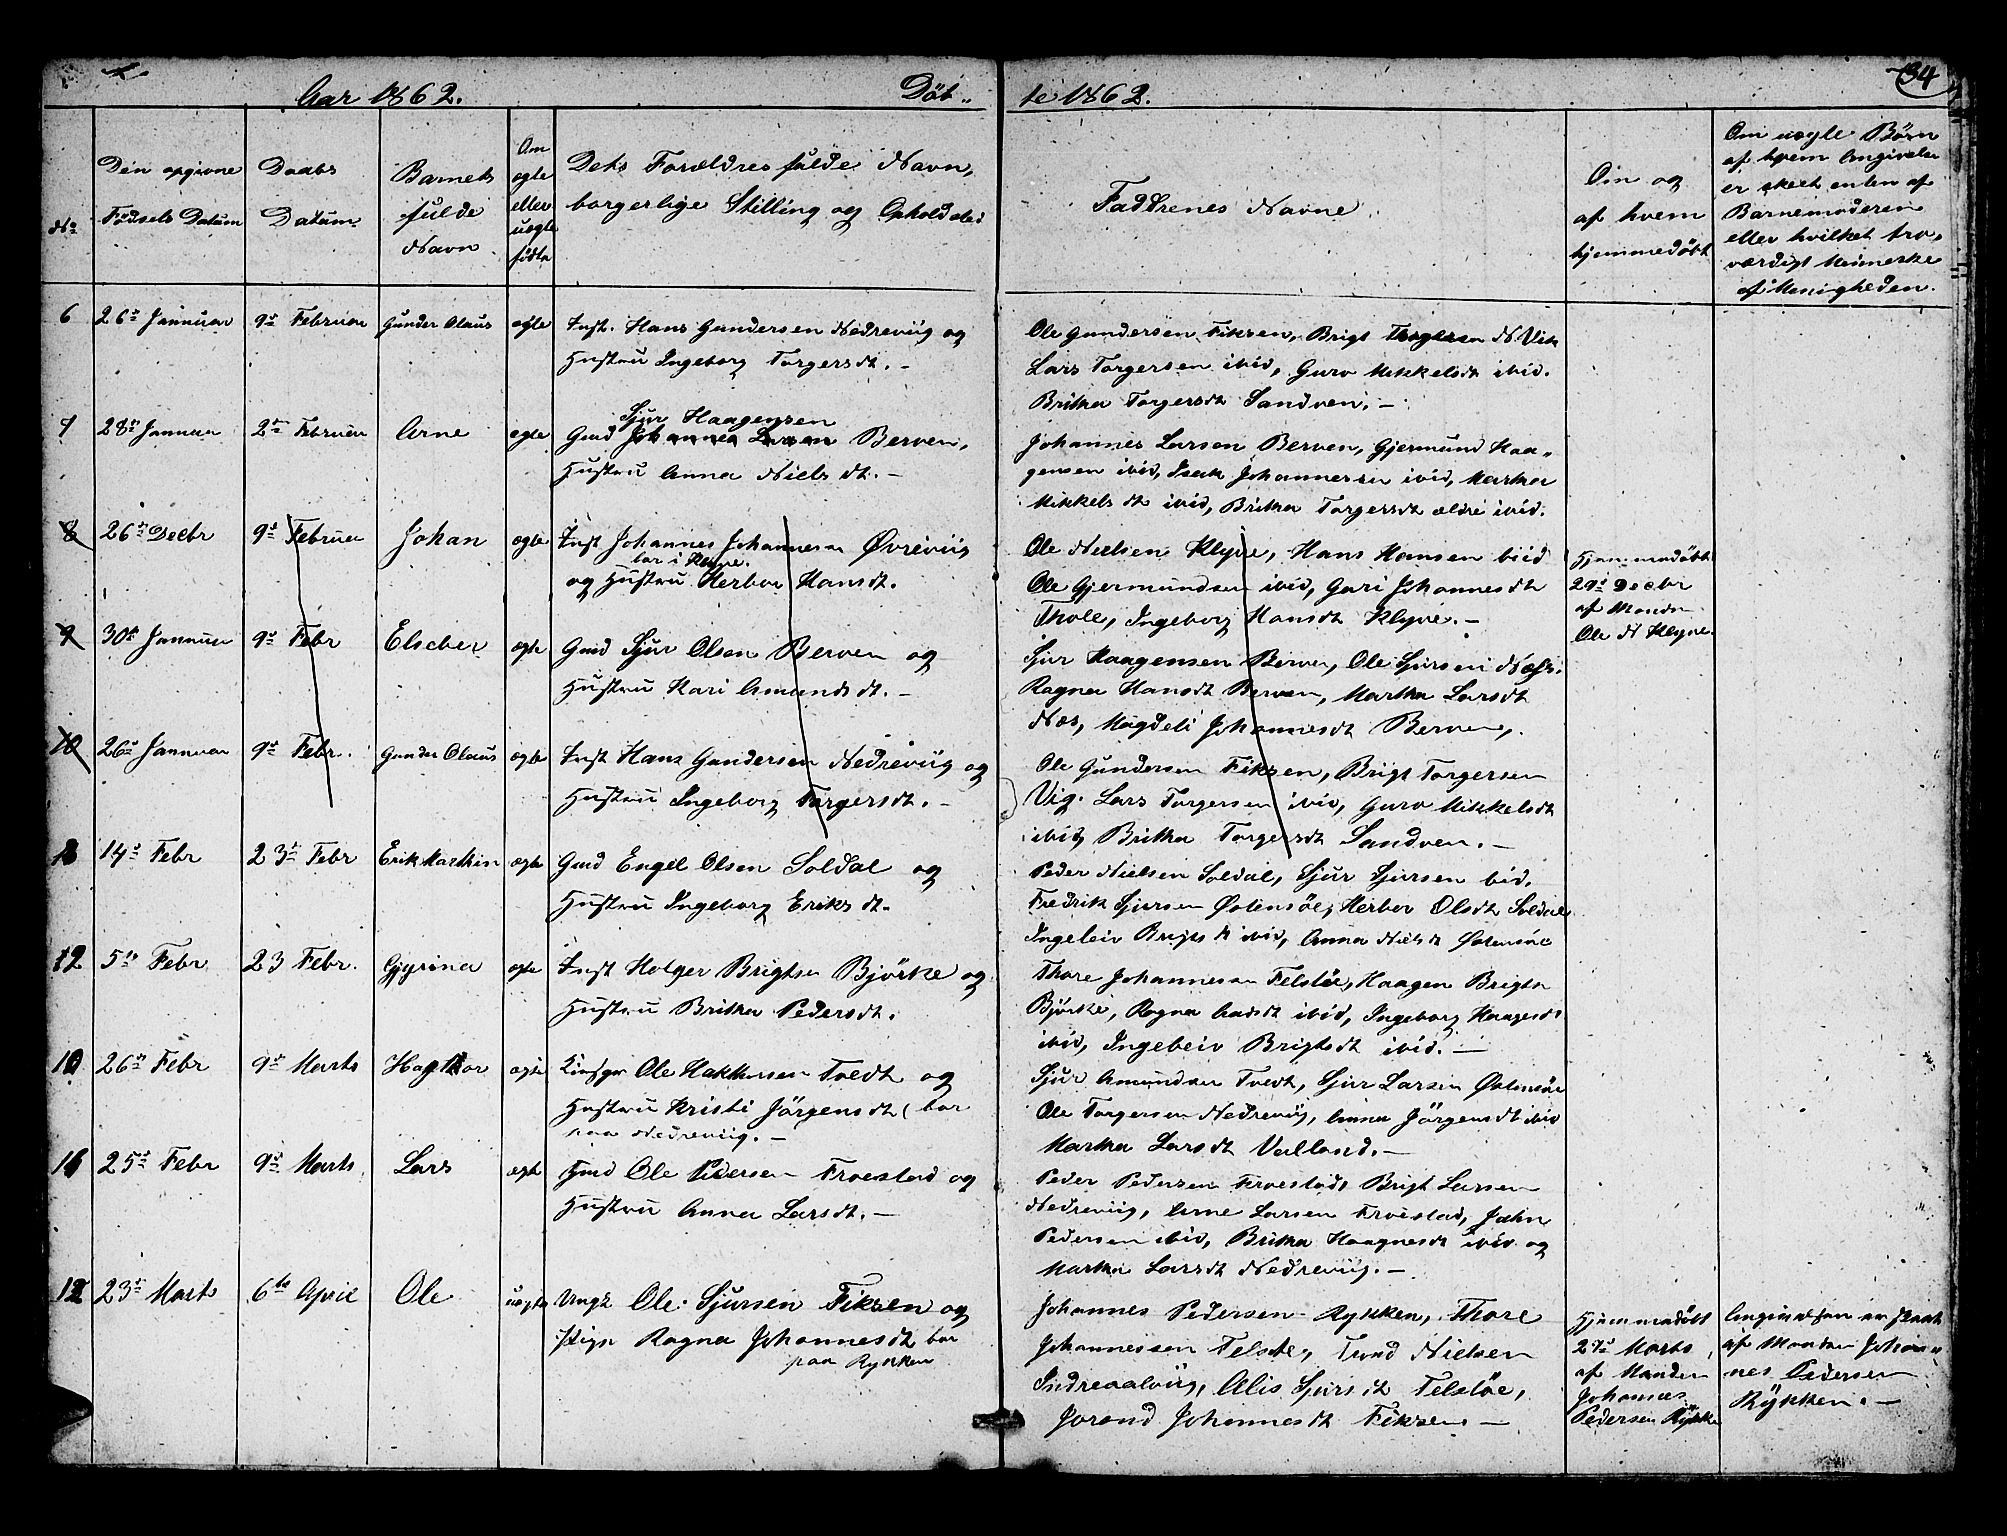 Aar 1862. Döb-
te 1862.
34
No
Den opgivne
Födsels Datum
Daabs
Datum
Barnets
fulde
Navn
Om
ægte
eller
uægte
födte
Dets Forældres fulde Navn,
borgerlige Stilling og Opholdsted
Faddrenes Navne
Om og
af hvem
hjemmedöbt
Om uægte Börn
af hvem Angivelse
er skeet enten af
Barnemoderen
eller hvilket tro-
værdigt Menneske
af Menigheden.
6 26de Januar 9de Februar Gunder Olaus ægte Inst. Hans Gundersen Nedreviig og
Hustru Ingeborg Torgersdt. -
Ole Gundersen Fiksen, Brigt Torgersen N Vik
Lars Torgersen ibid, Guro Mikkelsdt ibid.
Britha Torgersdt Sandven. -
7 28de Januar 2den Februar Arne ægte Gmd Sjur Haagensen Berven,
Hustru Anna Nielsdt. -
Johannes Larsen Berven, Gjermund Haa-
gensen ibid, Isak Johannessen ibid, Martha
Mikkelsdt ibid, Britha Torgersdt ældre ibid.
8 26de Decbr 9de Februar Johan ægte Inst Johannes Johannesen Övreviig
bor i Klyve.
og Hustru Herbor Hansdt.
Ole Nielsen Klyve, Hans Hansen ibid
Ole Gjermundsen ibid, Guri Johannesdt
Thole, Ingeborg Hansdt Klyve. -
Hjemmedöbt
29de Decbr
af Manden
Ole N Klyve.
9 30te Januar 9de Febr Elseber ægte Gmd Sjur Olsen Berven og
Hustru Kari Amundsdt. -
Sjur Haagensen Berven, Ole Sjursen Næs.
Ragna Hansdt Berven, Martha Larsdt
Næs, Magdeli Johannesdt Berven,
10 26de Januar 9de Febr. Gunder Olaus ægte Inst Hans Gundersen Nedreviig og
Hustru Ingeborg Torgersdt. -
Ole Gundersen Fiksen, Brigt Torgersen
Vig. Lars Torgersen ibid, Guro Mikkelsdt
ibid, Britha Torgersdt Sandven. -
14de Febr 23de Febr Erik Marthin ægte Gmd Engel Olsen Soldal og
Hustru Ingeborg Eriksdt.
Peder Nielsen Soldal, Sjur Sjursen ibid.
Fredrik Sjursen Östensöe, Herbor Olsdt Soldal
Ingeleiv Brigtsdt ibid, Anna Nielsdt Östensöe
12 5te Febr 23 Febr. Gjyrina ægte Inst Holger Brigtsen Björke og
Hustru Britha Pedersdt.
Thore Johannesen Felstöe, Haagen Brigtsen
Björke, Ragna Aadsdt ibid, Ingeborg Haagesdt
ibid, Ingeleiv Brigtsdt ibid. -
10 26de Febr 9de Marts Hagthor ægte Ole Hakkesen Tvedt og
Hustru Kristi Jörgensdt (bor
paa Nedreviig. -
Sjur Amundsen Tvedt, Sjur Larsen Östensöe
Ole Torgersen Nedreviig, Anna Jörgensdt ibid
Martha Larsdt Valland. -
25de Febr 9de Marts Lars ægte Gmd Ole Pedersen Froestad og
Hustru Anna Larsdt. -
Peder Pedersen Froestad, Brigt Larsen
Nedreviig, Arne Larsen Froestad, John
Pedersen ibid, Britha Haagnesdt ibid og
Martha Larsdt Nedreviig. -
12 23de Marts 6te April Ole uægte Ungk Ole Sjursen Fiksen og
Pige Ragna Johannesdt bor
paa Rykken
Johannes Pedersen Rykken, Thore
Johannessen Felstöe, Trond Nielsen
Indreaalviig, Alis Sjursdt Felstöe,
Jorand Johannesdt Fiksen. -
Hjemmedöbt
27de Marts
af Manden
Johannes
Pedersen Rykken
Angivelsen er skeet
af Manden Johan-
nes Pedersen
Rykken. -